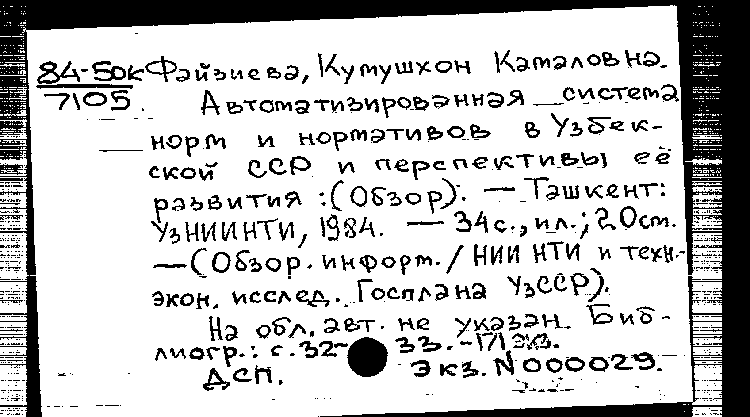 84-50к Файзиева, Кумушхон Камаловна.
7105. Автоматизированная система
норм и нормативов в Узбек-
ской ССР и перспективы её
развития : (Обзор). — Ташкент:
УзНИИНТИ, 1984. — 34 с., ил.; 20 см.
— (Обзор. информ. / НИИ НТИ и техн.-
экон. исслед. Госплана УзССР).
На обл. авт. не указан. Биб-
лиогр.: с. 32-33. - 171 экз.
ДСП. Экз. N 000029.